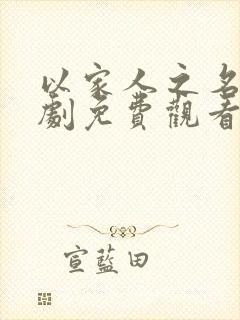 以家人之名
劇免費觀看
宣藍田